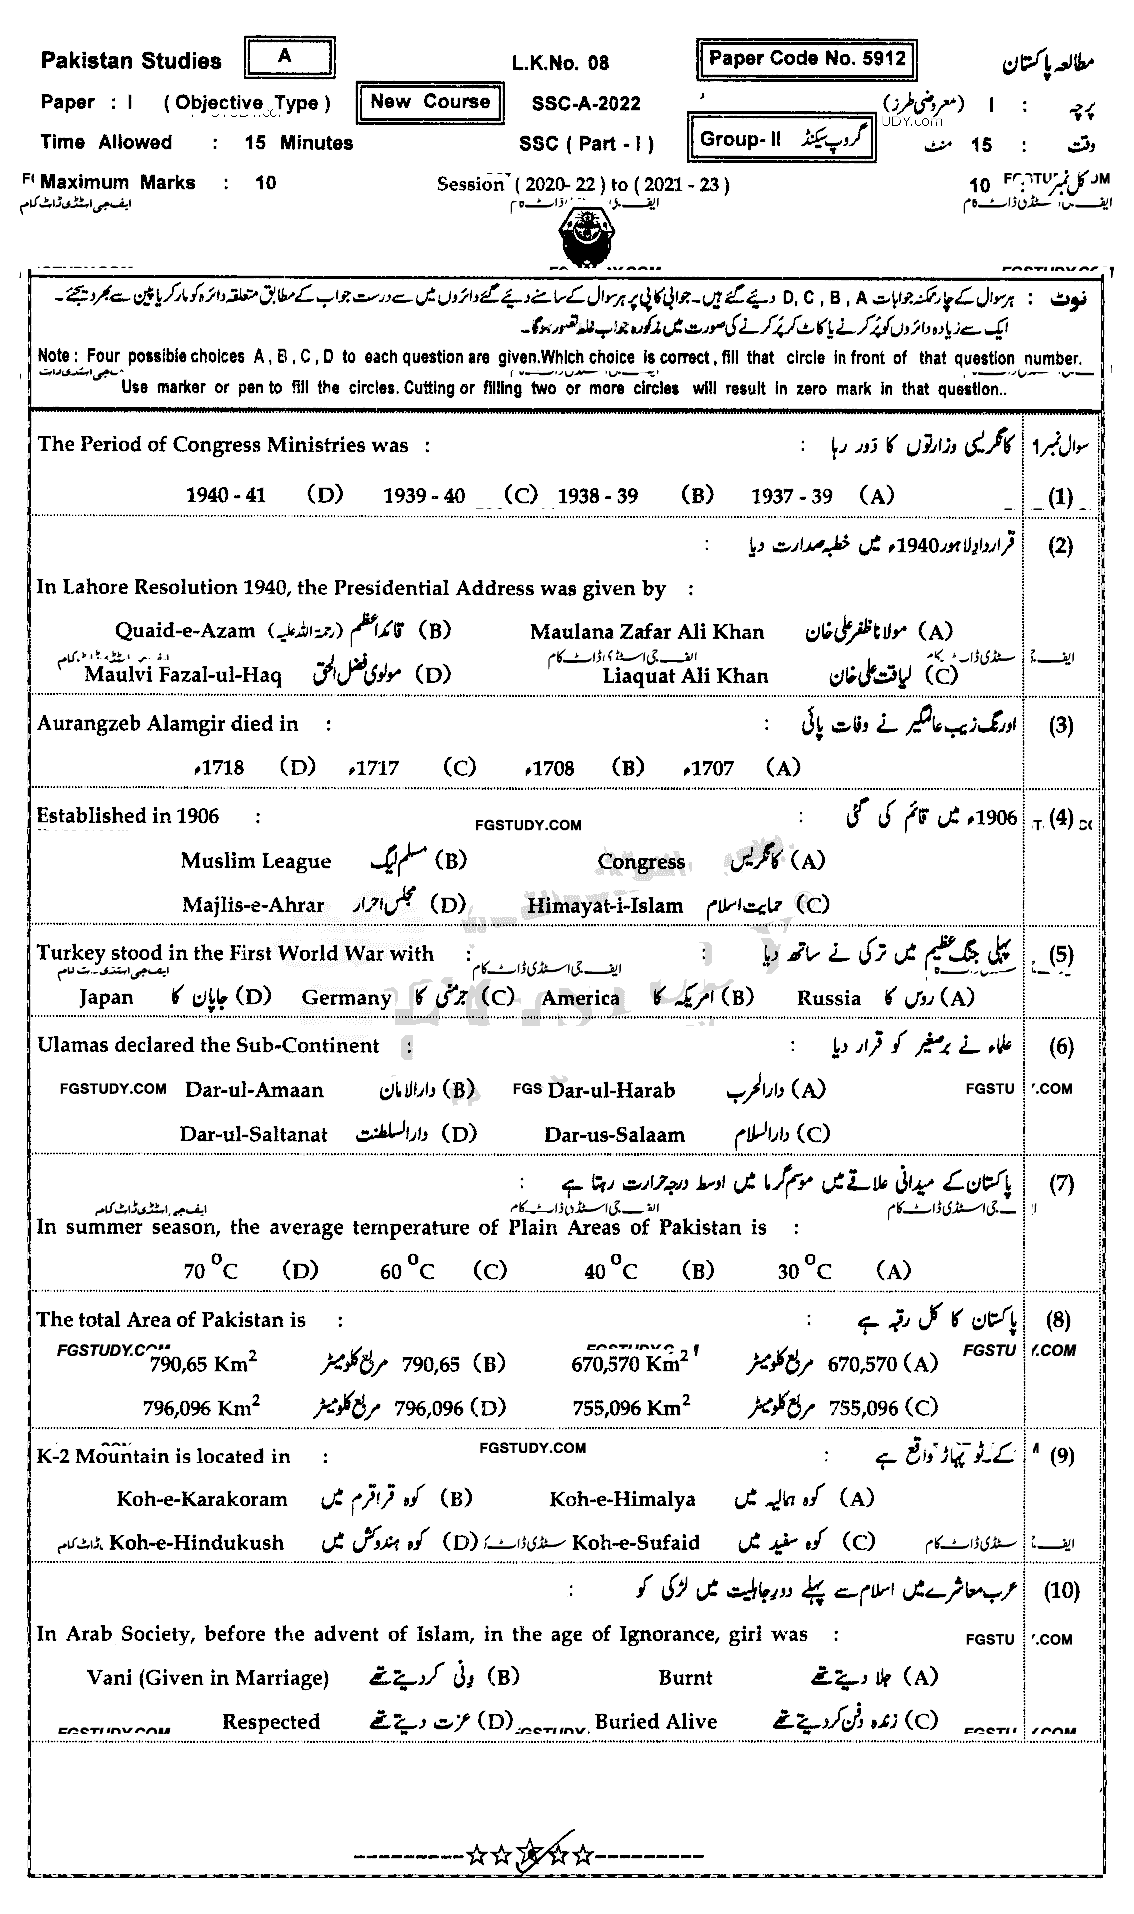 Pakistan Studies A L.K.No. 08 Paper Code No. 5912 مطالعہ پاکستان
Paper : I ( Objective Type ) New Course SSC-A-2022 پرچہ : I (معروضی طرز)
UDY.com
Time Allowed : 15 Minutes SSC ( Part - I ) Group- II گروپ سیکنڈ وقت : 15 منٹ
Maximum Marks : 10 Session ( 2020- 22 ) to ( 2021 - 23 ) کل نمبر : 10
ایف جی اسٹڈی ڈاٹ کام
نوٹ : ہر سوال کے چار ممکنہ جوابات D, C, B, A دیئے گئے ہیں۔ جوابی کاپی پر ہر سوال کے سامنے دیئے گئے دائروں میں سے درست جواب کے مطابق متعلقہ دائرہ کو مارکر یا پین سے بھر دیجئے۔
ایک سے زیادہ دائروں کو پُر کرنے یا کاٹ کر پُر کرنے کی صورت میں مذکورہ جواب غلط تصور ہوگا۔
Note : Four possible choices A , B , C , D to each question are given.Which choice is correct , fill that circle in front of that question number.
Use marker or pen to fill the circles. Cutting or filling two or more circles will result in zero mark in that question..
The Period of Congress Ministries was : کانگریسی وزارتوں کا دَور رہا : سوال نمبر 1
1940 - 41 (D) 1939 - 40 (C) 1938 - 39 (B) 1937 - 39 (A) (1)
قرارداد لاہور 1940ء میں خطبہ صدارت دیا : (2)
In Lahore Resolution 1940, the Presidential Address was given by :
Quaid-e-Azam قائداعظم (رحمۃ اللہ علیہ) (B) Maulana Zafar Ali Khan مولانا ظفر علی خان (A)
ایف جی اسٹڈی ڈاٹ کام
Maulvi Fazal-ul-Haq مولوی فضل الحق (D) Liaquat Ali Khan لیاقت علی خان (C)
Aurangzeb Alamgir died in : اورنگ زیب عالمگیر نے وفات پائی : (3)
1718ء (D) 1717ء (C) 1708ء (B) 1707ء (A)
Established in 1906 : FGSTUDY.COM 1906ء میں قائم کی گئی : (4)
Muslim League مسلم لیگ (B) Congress کانگریس (A)
Majlis-e-Ahrar مجلس احرار (D) Himayat-i-Islam حمایت اسلام (C)
Turkey stood in the First World War with : پہلی جنگ عظیم میں ترکی نے ساتھ دیا : (5)
ایف جی اسٹڈی ڈاٹ کام
Japan جاپان کا (D) Germany جرمنی کا (C) America امریکہ کا (B) Russia روس کا (A)
Ulamas declared the Sub-Continent : علماء نے برصغیر کو قرار دیا : (6)
FGSTUDY.COM Dar-ul-Amaan دارالامان (B) FGS Dar-ul-Harab دارالحرب (A) FGSTU .COM
Dar-ul-Saltanat دارالسلطنت (D) Dar-us-Salaam دارالسلام (C)
پاکستان کے میدانی علاقے میں موسم گرما میں اوسط درجہ حرارت رہتا ہے : (7)
ایف جی اسٹڈی ڈاٹ کام
In summer season, the average temperature of Plain Areas of Pakistan is :
70 °C (D) 60 °C (C) 40 °C (B) 30 °C (A)
The total Area of Pakistan is : پاکستان کا کل رقبہ ہے : (8)
FGSTUDY.COM FGSTU .COM
790,65 Km² مربع کلومیٹر 790,65 (B) 670,570 Km² مربع کلومیٹر 670,570 (A)
796,096 Km² مربع کلومیٹر 796,096 (D) 755,096 Km² مربع کلومیٹر 755,096 (C)
K-2 Mountain is located in : FGSTUDY.COM کے۔ٹو پہاڑ واقع ہے : (9)
Koh-e-Karakoram کوہ قراقرم میں (B) Koh-e-Himalya کوہ ہمالیہ میں (A)
Koh-e-Hindukush کوہ ہندوکش میں (D) Koh-e-Sufaid کوہ سفید میں (C)
عرب معاشرے میں اسلام سے پہلے دور جاہلیت میں لڑکی کو : (10)
In Arab Society, before the advent of Islam, in the age of Ignorance, girl was : FGSTU .COM
Vani (Given in Marriage) ونی کر دیتے تھے (B) Burnt جلا دیتے تھے (A)
FGSTUDY.COM Respected عزت دیتے تھے (D) Buried Alive زندہ دفن کر دیتے تھے (C) FGSTU .COM